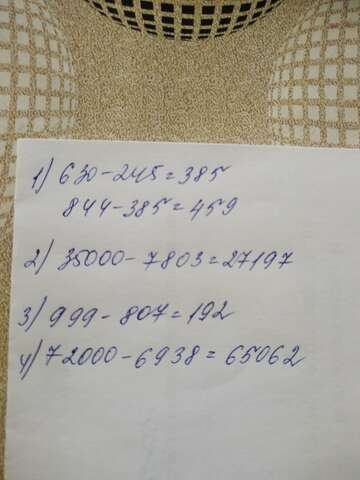 1) 630-245=385
844-385=459
2) 35000-7803=27197
3) 999-807=192
4) 72000-6938=65062